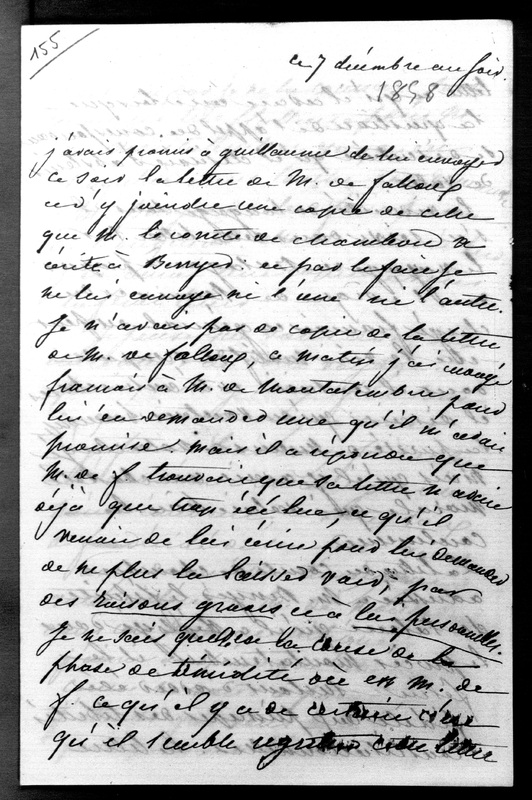 155
ce 7 décembre au soir.
1858
j'avais promis à guillaume de lui envoyer
ce soir la lettre de M. de falloux
et d'y joindre une copie de celle
que M. le comte de chambord a
écrite à Berryer. et par le fait je
ne lui envoye ni l'une ni l'autre.
Je n'avais pas de copie de la lettre
de M. de falloux, ce matin j'ai envoyé
francois à M. de Montalembert pour
lui en demander une qu'il m'avait
promise. mais il a répondu que
M. de f. trouvait que sa lettre n'avait
déjà que trop été lue, et qu'il
venait de lui écrire pour lui demander
de ne plus la laisser voir, par
des raisons graves et à lui personnelles.
Je ne sais quelle est la cause de la
phase de timidité où est M. de
f. ce qu'il y a de certain c'est
qu'il semble regretter cette lettre